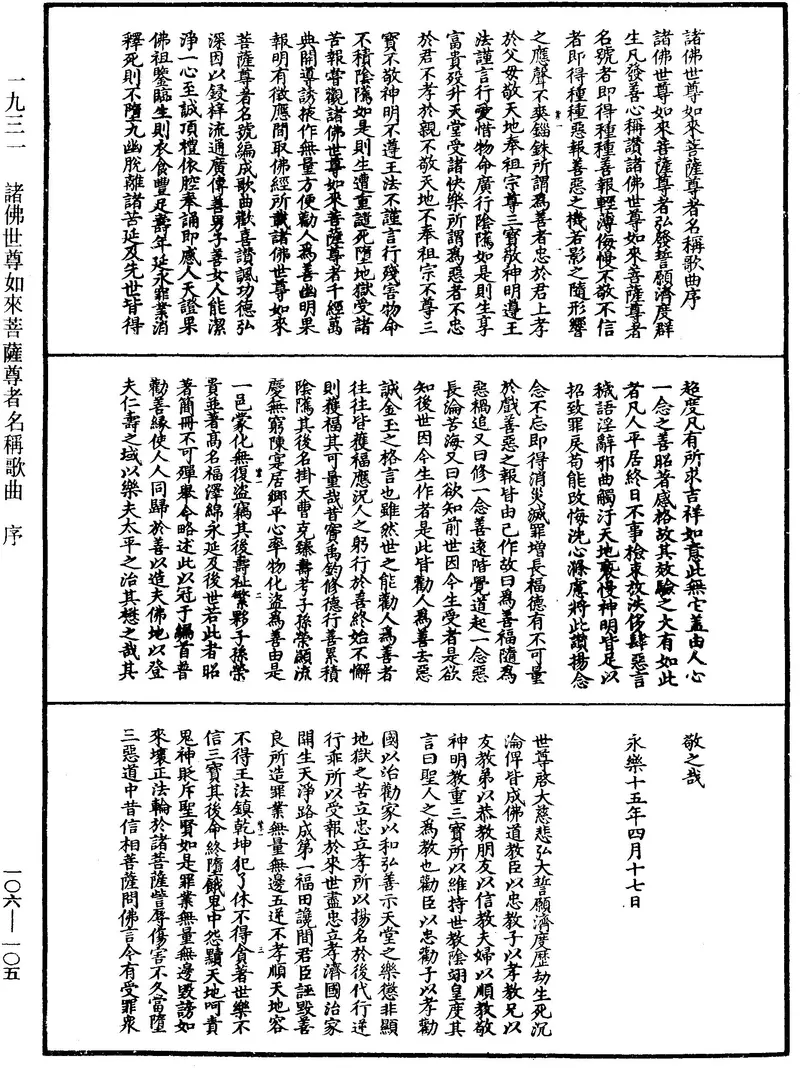 諸佛世尊如來菩薩尊者名稱歌曲序
諸佛世尊如來菩薩尊者弘發誓願濟度群
生凡發善心稱讚諸佛世尊如來菩薩尊者
名號者即得種種善報輕薄侮慢不敬不信
者即得種種惡報善惡之機若影之隨形響
之應聲不爽錙銖所謂為善者忠於君上孝
於父母敬天地奉祖宗尊三寶敬神明遵王
法謹言行愛惜物命廣行陰隲如是則生享
富貴殁升天堂受諸快樂所謂為惡者不忠
於君不孝於親不敬天地不奉祖宗不尊三
寶不敬神明不遵王法不謹言行殘害物命
不積陰隲如是則生遭重譴死墮地獄受諸
苦報嘗觀諸佛世尊如來菩薩尊者千經萬
典開導誘掖作無量方便勸人為善幽明果
報明有徵應間取佛經所載諸佛世尊如來
菩薩尊者名號編成歌曲歡喜讚諷功德弘
深因以鋟梓流通廣傳善男子善女人能潔
淨一心至誠頂禮依腔奉誦即應人天證果
佛祖鑒臨生則衣食豐足壽年延永罪業消
釋死則不墮九幽脫離諸苦延及先世皆得
超度凡有所求吉祥如意此無它蓋由人心
一念之善昭著感格故其效驗之大有如此
者凡人平居終日不事檢束放泆侈肆惡言
穢語淫辭邪曲觸汙天地褻慢神明皆足以
招致罪戾苟能改悔洗心滌慮將此讚揚念
念不忘即得消災滅罪增長福德有不可量
於戲善惡之報皆由己作故曰為善福隨為
惡禍追又曰修一念善遠階覺道起一念惡
長淪苦海又曰欲知前世因今生受者是欲
知後世因今生作者是此皆勸人為善去惡
誠金玉之格言也雖然世之能勸人為善者
往往皆獲福應況人之躬行於善終始不懈
則獲福其可量哉昔竇禹鈞修德行善累積
陰隲其後名掛天曹克臻壽考子孫榮顯流
慶無窮陳寔居鄉平心率物化盜為善由是
一邑蒙化無復盜竊其後壽祉繁夥子孫榮
貴並著高名福澤綿永延及後世若此者昭
著簡冊不可殫舉今略述此以冠于編首普
勸善緣使人人同歸於善以造夫佛地以登
夫仁壽之域以樂夫太平之治其懋之哉其
敬之哉
永樂十五年四月十七日
世尊啟大慈悲弘大誓願濟度歷劫生死沉
淪俾皆成佛道教臣以忠教子以孝教兄以
友教弟以恭教朋友以信教夫婦以順教敬
神明教重三寶所以維持世教陰翊皇度其
言曰聖人之為教也勸臣以忠勸子以孝勸
國以治勸家以和弘善示天堂之樂懲非顯
地獄之苦立忠立孝所以揚名於後代行逆
行乖所以受報於來世盡忠立孝濟國治家
開生天淨路成第一福田讒間君臣誣毀善
良所造罪業無量無邊五逆不孝順天地容
不得王法鎮乾坤犯了休不得貪著世樂不
信三寶其後命終墮餓鬼中怨黷天地呵責
鬼神貶斥聖賢如是罪業無量無邊毀謗如
來壞正法輪於諸菩薩訾辱傷害不久當墮
三惡道中昔信相菩薩問佛言今有受罪眾
一九三一 諸佛世尊如來菩薩尊者名稱歌曲 序
一〇六—一〇五